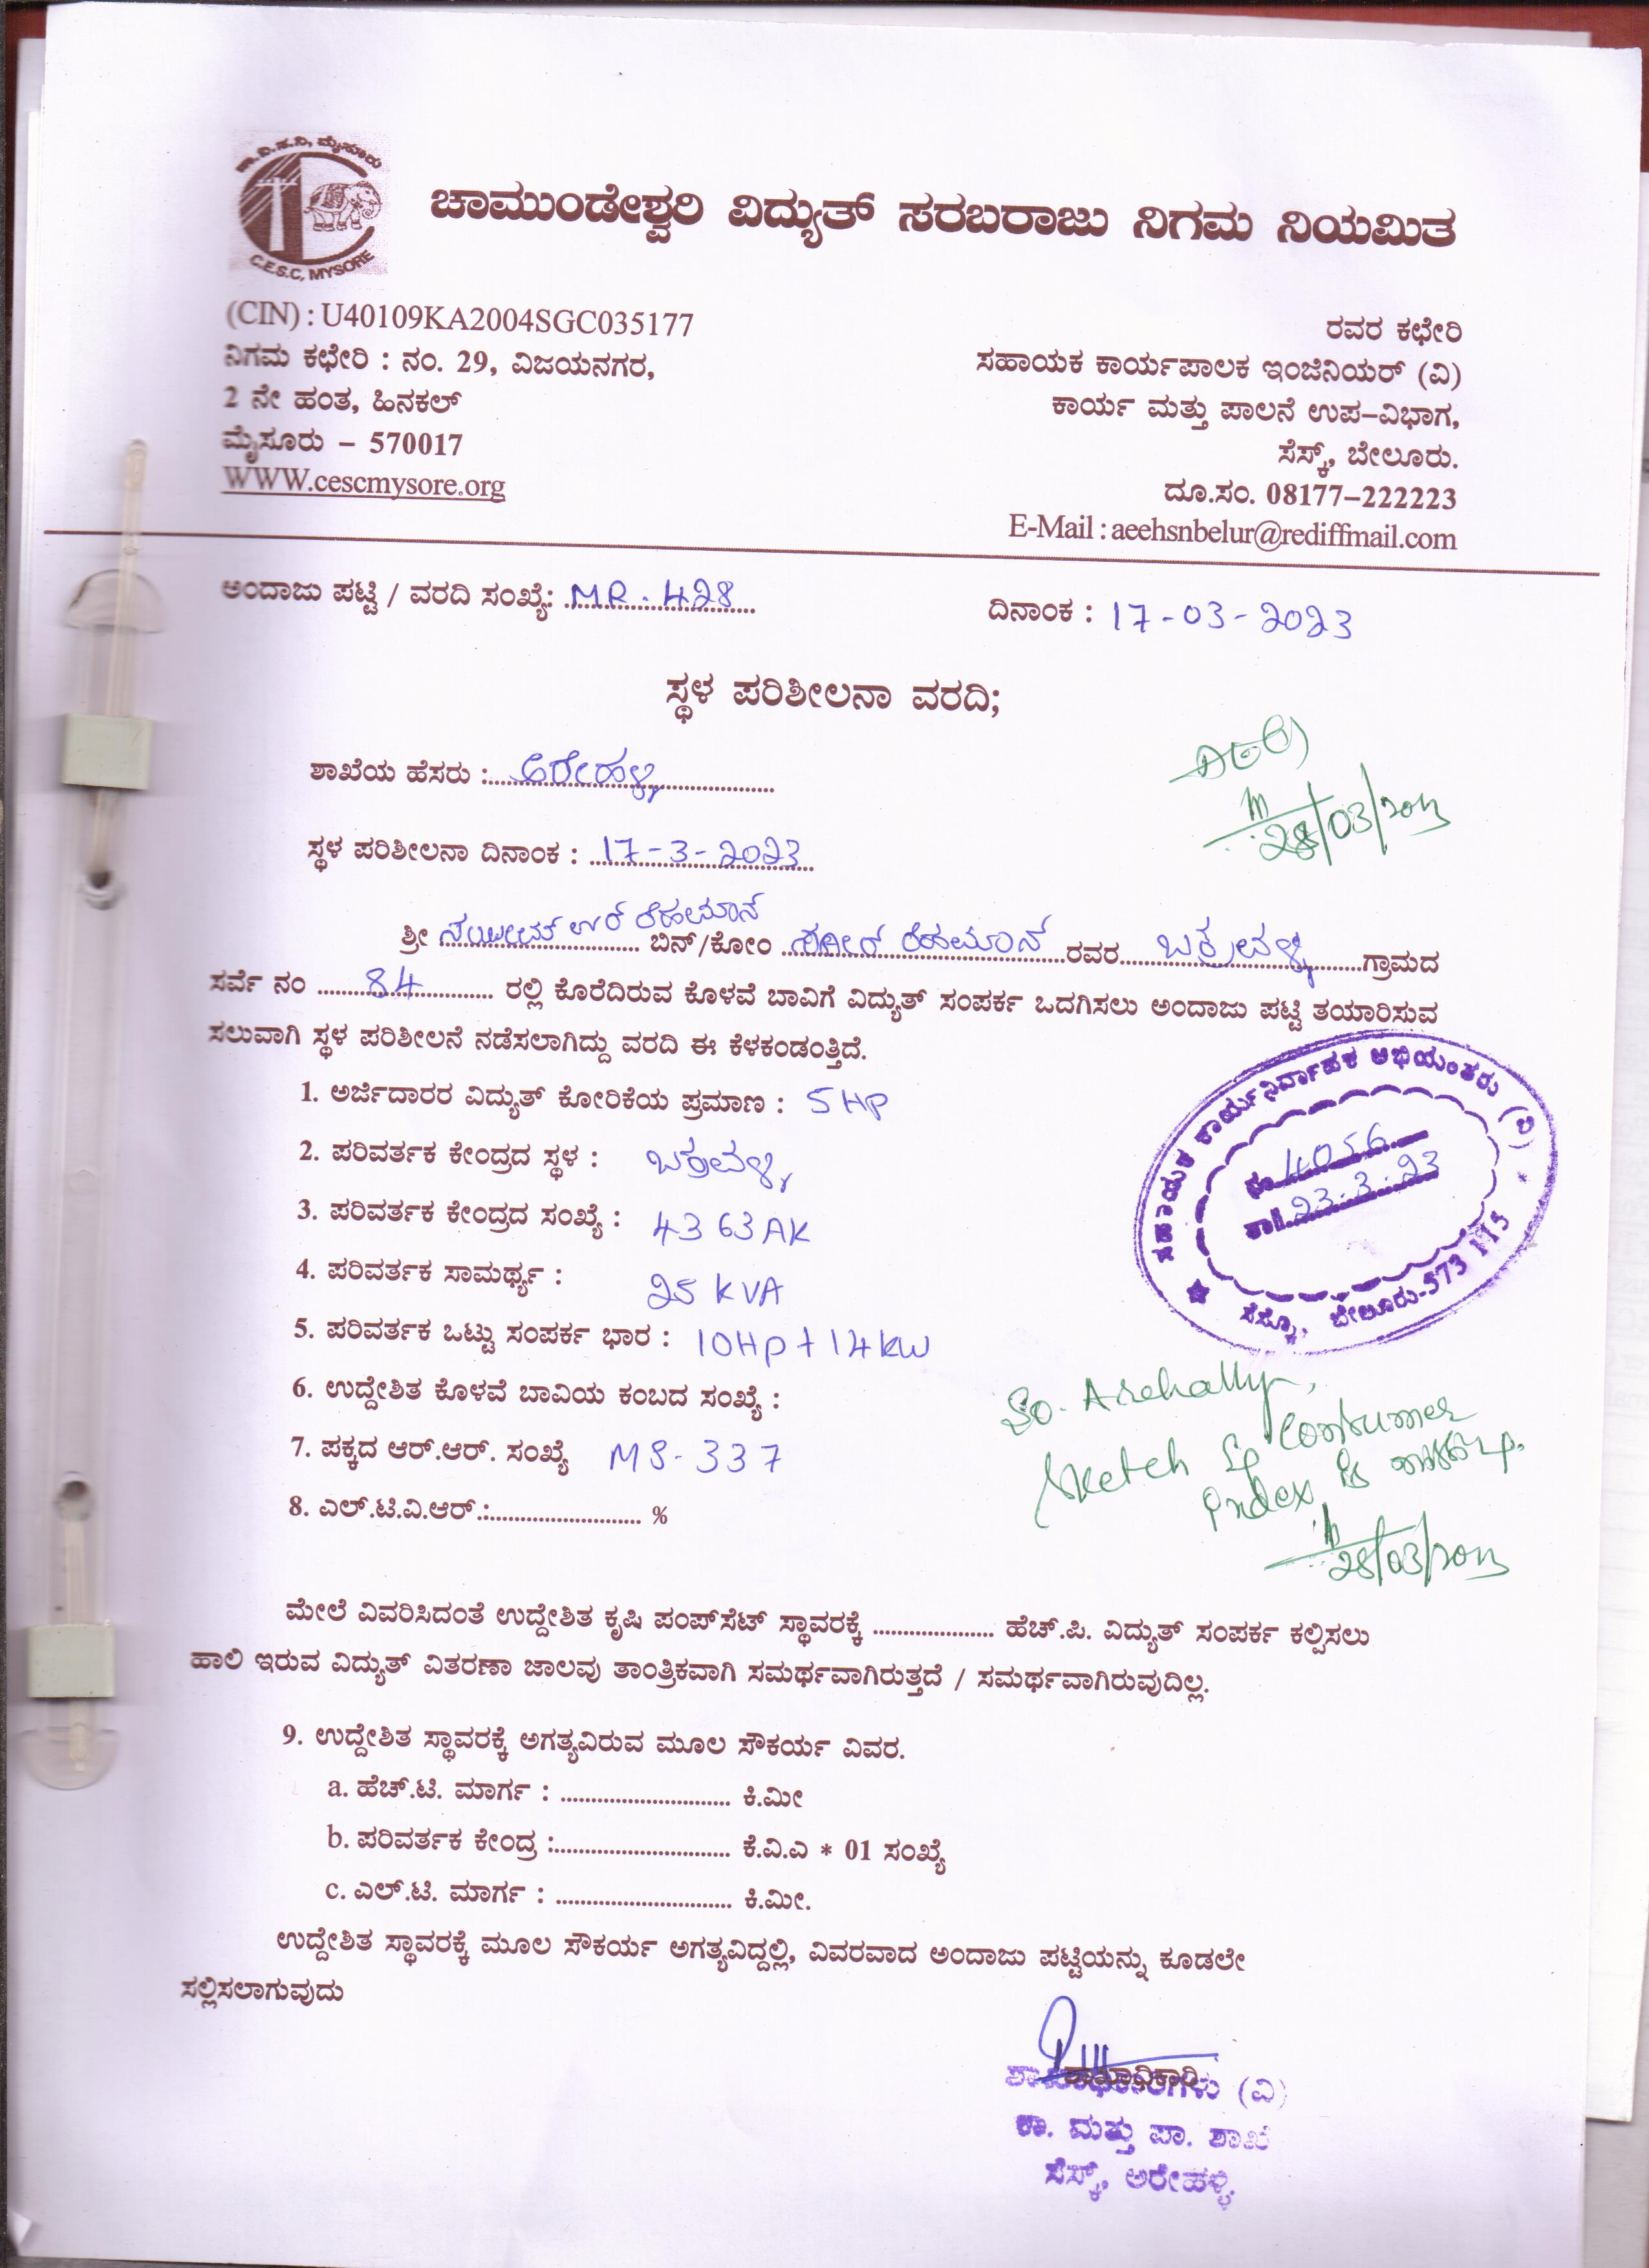 ಚಾ.ವಿ.ಸ.ನಿ, ಮೈಸೂರು
C.E.S.C, MYSORE
ಚಾಮುಂಡೇಶ್ವರಿ ವಿದ್ಯುತ್ ಸರಬರಾಜು ನಿಗಮ ನಿಯಮಿತ
(CIN) : U40109KA2004SGC035177
ನಿಗಮ ಕಛೇರಿ : ನಂ. 29, ವಿಜಯನಗರ,
2 ನೇ ಹಂತ, ಹಿನಕಲ್
ಮೈಸೂರು – 570017
WWW.cescmysore.org
ರವರ ಕಛೇರಿ
ಸಹಾಯಕ ಕಾರ್ಯಪಾಲಕ ಇಂಜಿನಿಯರ್ (ವಿ)
ಕಾರ್ಯ ಮತ್ತು ಪಾಲನೆ ಉಪ–ವಿಭಾಗ,
ಸೆಸ್ಕ್, ಬೇಲೂರು.
ದೂ.ಸಂ. 08177–222223
E-Mail : aeehsnbelur@rediffmail.com
ಅಂದಾಜು ಪಟ್ಟಿ / ವರದಿ ಸಂಖ್ಯೆ: MR. 428 ದಿನಾಂಕ : 17-03-2023
ಸ್ಥಳ ಪರಿಶೀಲನಾ ವರದಿ;
ಶಾಖೆಯ ಹೆಸರು : ಅರೇಹಳ್ಳಿ
28/03/2023
ಸ್ಥಳ ಪರಿಶೀಲನಾ ದಿನಾಂಕ : 17-3-2023
ಶ್ರೀ ಉರ್ ರೆಹಮಾನ್ ಬಿನ್/ಕೋಂ ರೆಹಮಾನ್ ರವರ ಬಕ್ರವಳ್ಳಿ ಗ್ರಾಮದ
ಸರ್ವೆ ನಂ 84 ರಲ್ಲಿ ಕೊರೆದಿರುವ ಕೊಳವೆ ಬಾವಿಗೆ ವಿದ್ಯುತ್ ಸಂಪರ್ಕ ಒದಗಿಸಲು ಅಂದಾಜು ಪಟ್ಟಿ ತಯಾರಿಸುವ
ಸಲುವಾಗಿ ಸ್ಥಳ ಪರಿಶೀಲನೆ ನಡೆಸಲಾಗಿದ್ದು ವರದಿ ಈ ಕೆಳಕಂಡಂತ್ತಿದೆ.
1. ಅರ್ಜಿದಾರರ ವಿದ್ಯುತ್ ಕೋರಿಕೆಯ ಪ್ರಮಾಣ : 5 HP
2. ಪರಿವರ್ತಕ ಕೇಂದ್ರದ ಸ್ಥಳ : ಬಕ್ರವಳ್ಳಿ
3. ಪರಿವರ್ತಕ ಕೇಂದ್ರದ ಸಂಖ್ಯೆ : 4363AK
4. ಪರಿವರ್ತಕ ಸಾಮರ್ಥ್ಯ : 25 KVA
5. ಪರಿವರ್ತಕ ಒಟ್ಟು ಸಂಪರ್ಕ ಭಾರ : 10Hp + 14 kW
6. ಉದ್ದೇಶಿತ ಕೊಳವೆ ಬಾವಿಯ ಕಂಬದ ಸಂಖ್ಯೆ :
7. ಪಕ್ಕದ ಆರ್.ಆರ್. ಸಂಖ್ಯೆ MS-337
8. ಎಲ್.ಟಿ.ವಿ.ಆರ್ : %
ಸಹಾಯಕ ಕಾರ್ಯನಿರ್ವಾಹಕ ಅಭಿಯಂತರು (ವಿ)
4056
23-3-23
ಸೆಸ್ಕ್, ಬೇಲೂರು-573 115
So. Arehally,
Sketch Consumer
Index
28/03/2023
ಮೇಲೆ ವಿವರಿಸಿದಂತೆ ಉದ್ದೇಶಿತ ಕೃಷಿ ಪಂಪ್‌ಸೆಟ್ ಸ್ಥಾವರಕ್ಕೆ .................... ಹೆಚ್.ಪಿ. ವಿದ್ಯುತ್ ಸಂಪರ್ಕ ಕಲ್ಪಿಸಲು
ಹಾಲಿ ಇರುವ ವಿದ್ಯುತ್ ವಿತರಣಾ ಜಾಲವು ತಾಂತ್ರಿಕವಾಗಿ ಸಮರ್ಥವಾಗಿರುತ್ತದೆ / ಸಮರ್ಥವಾಗಿರುವುದಿಲ್ಲ.
9. ಉದ್ದೇಶಿತ ಸ್ಥಾವರಕ್ಕೆ ಅಗತ್ಯವಿರುವ ಮೂಲ ಸೌಕರ್ಯ ವಿವರ.
a. ಹೆಚ್.ಟಿ. ಮಾರ್ಗ : ............................ ಕಿ.ಮೀ
b. ಪರಿವರ್ತಕ ಕೇಂದ್ರ :............................ ಕೆ.ವಿ.ಎ * 01 ಸಂಖ್ಯೆ
c. ಎಲ್.ಟಿ. ಮಾರ್ಗ : ............................ ಕಿ.ಮೀ.
ಉದ್ದೇಶಿತ ಸ್ಥಾವರಕ್ಕೆ ಮೂಲ ಸೌಕರ್ಯ ಅಗತ್ಯವಿದ್ದಲ್ಲಿ, ವಿವರವಾದ ಅಂದಾಜು ಪಟ್ಟಿಯನ್ನು ಕೂಡಲೇ
ಸಲ್ಲಿಸಲಾಗುವುದು
ಶಾಖಾಧಿಕಾರಿ
ಶಾಖಾಧಿಕಾರಿಗಳು (ವಿ)
ಕಾ. ಮತ್ತು ಪಾ. ಶಾಖೆ
ಸೆಸ್ಕ್, ಅರೇಹಳ್ಳಿ.